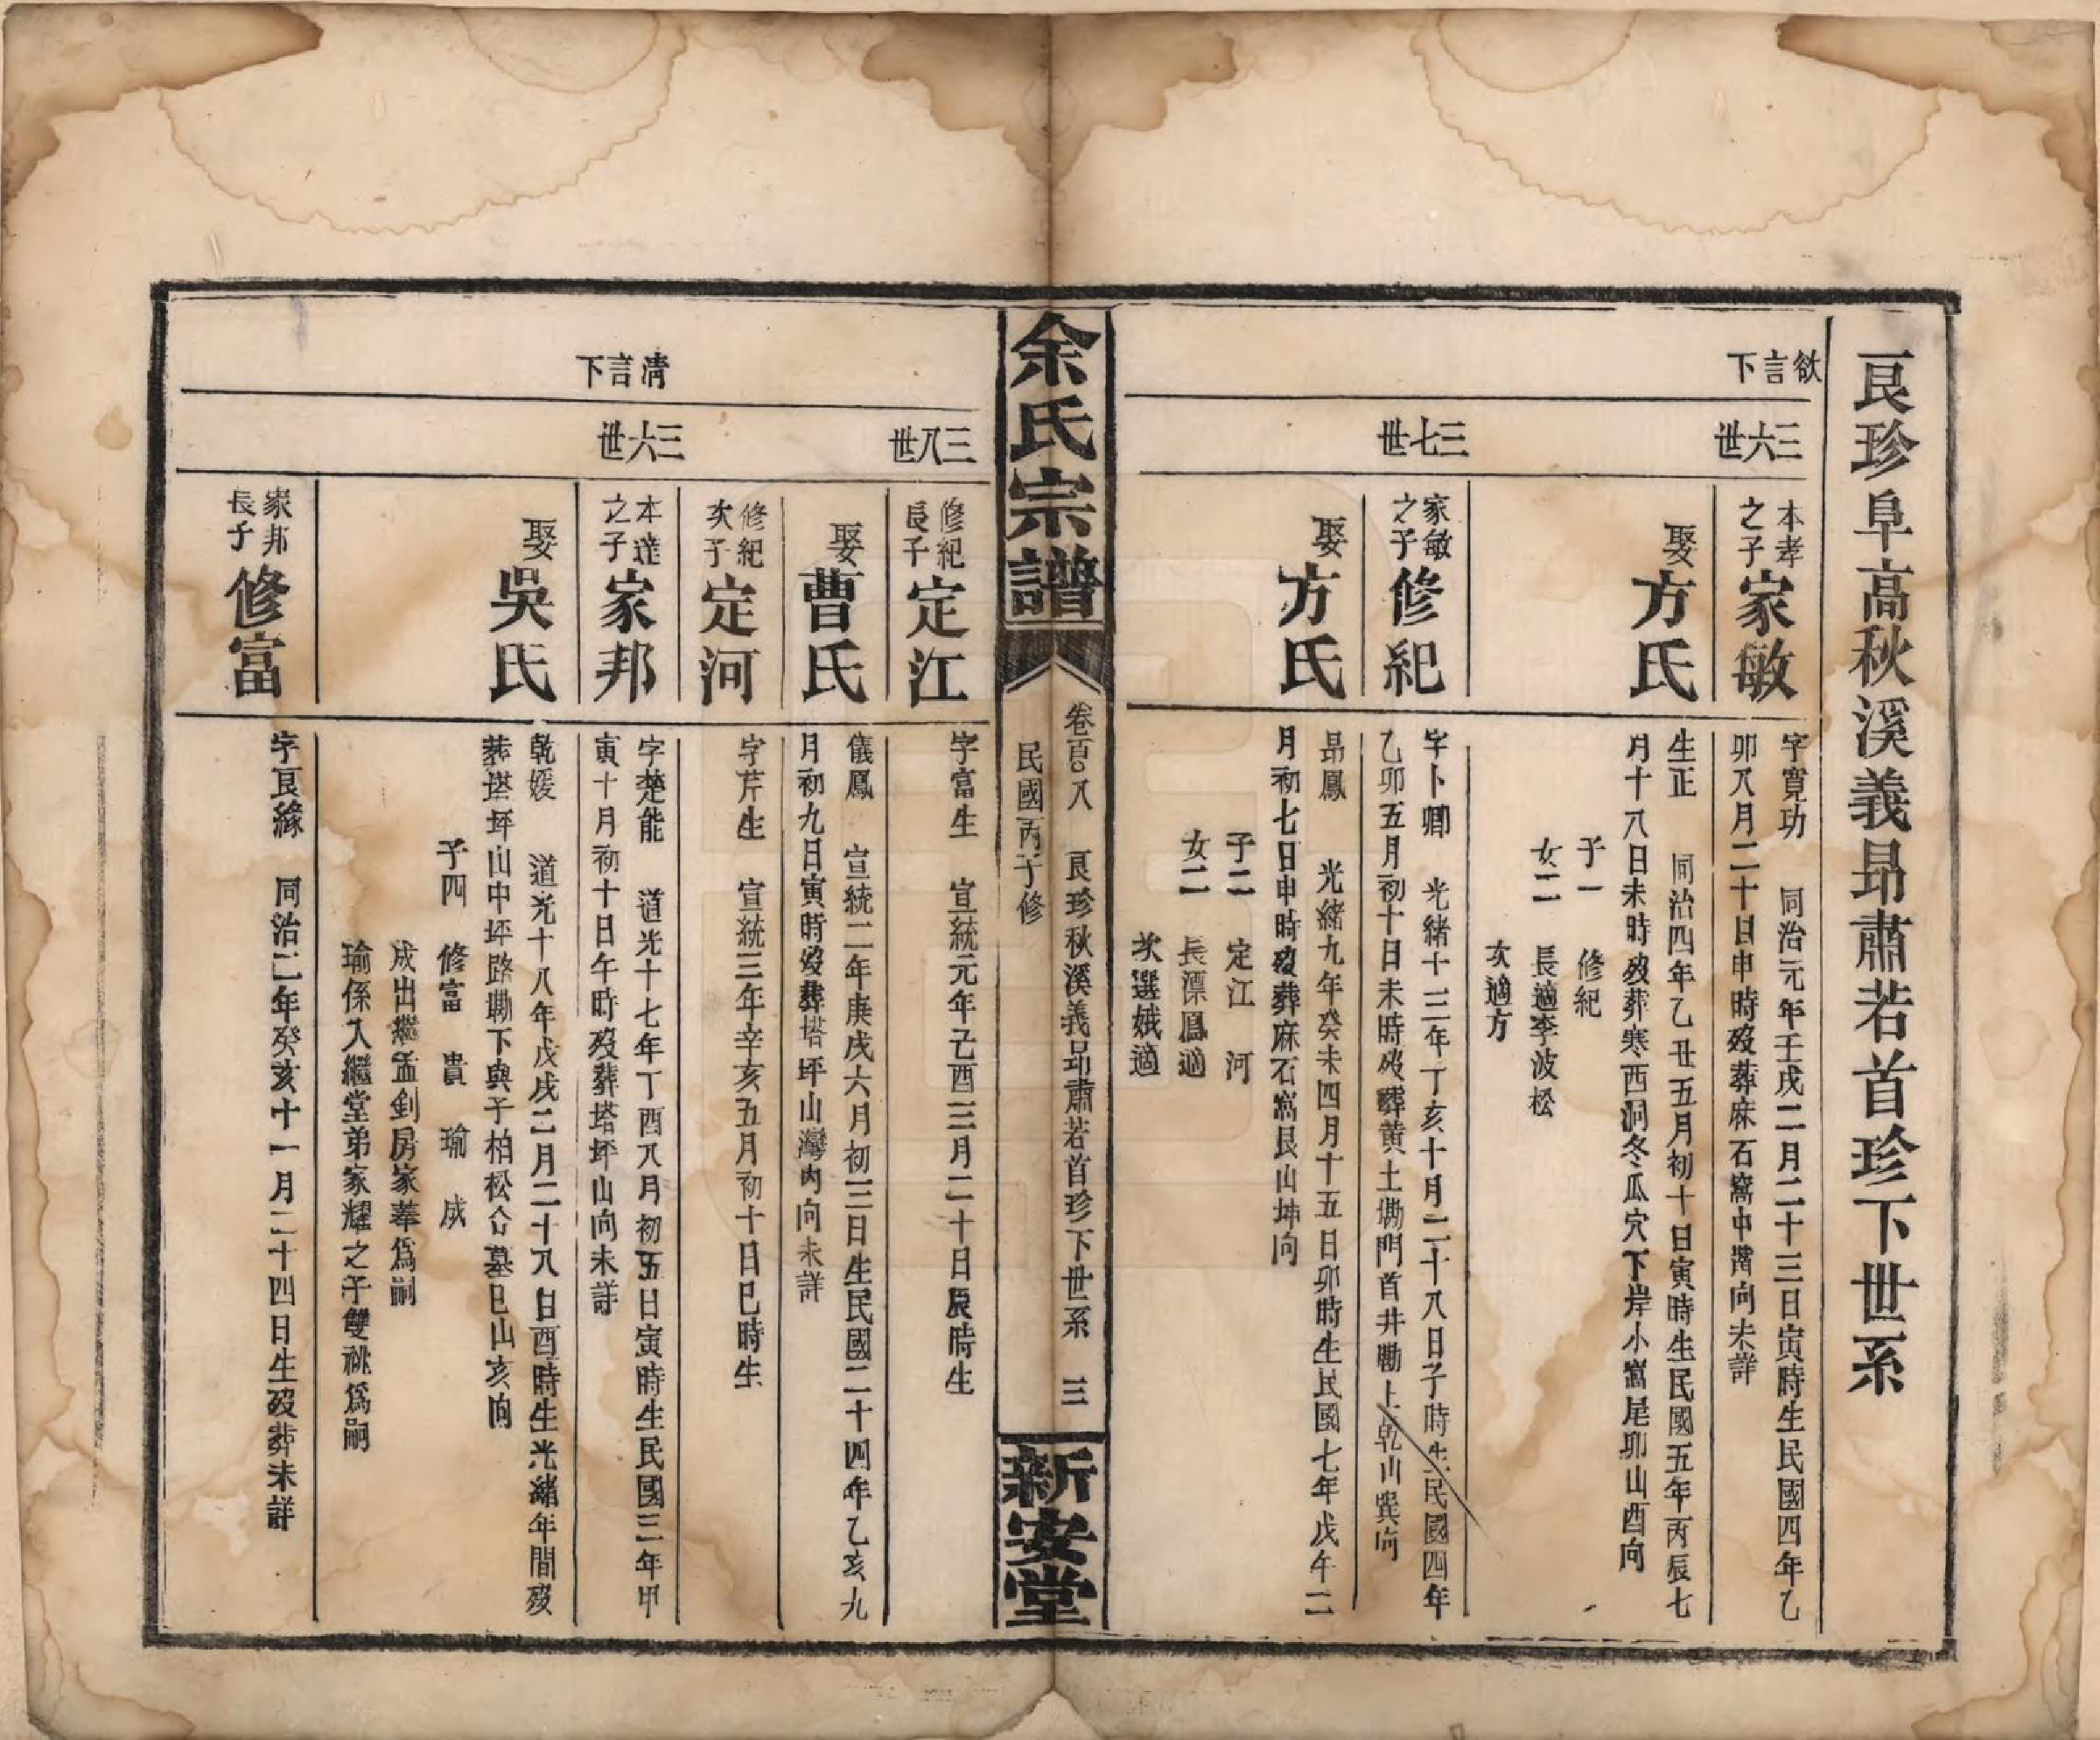 艮珍阜高秋溪義昂肅若首珍下世系
欲言下
三六世
本孝之子家敏
字寬功 同治元年壬戌二月二十三日寅時生民國四年乙
卯八月二十日申時歿葬麻石窩中嘴向未詳
娶方氏
生正 同治四年乙丑五月初十日寅時生民國五年丙辰七
月十八日未時歿葬寒西洞冬瓜穴下岸小窩尾卯山酉向
子一 修紀
女二 長適李波松
次適方
三七世
家敏之子修紀
字卜卿 光緒十三年丁亥十月二十八日子時生民國四年
乙卯五月初十日未時歿葬黃土墈門首井墈上乾山巽向
娶方氏
昂鳳 光緒九年癸未四月十五日卯時生民國七年戊午二
月初七日申時歿葬麻石窩艮山坤向
子二 定江 河
女二 長漂鳳適
次選娥適
余氏宗譜
卷百八 艮珍秋溪義昂肅若首珍下世系 三
民國丙子修
新安堂
三八世
修紀長子定江
字富生 宣統元年己酉三月二十日辰時生
娶曹氏
儀鳳 宣統二年庚戌六月初三日生民國二十四年乙亥九
月初九日寅時歿葬塔坪山灣內向未詳
修紀次子定河
字芹生 宣統三年辛亥五月初十日巳時生
清言下
三六世
本達之子家邦
字楚能 道光十七年丁酉八月初五日寅時生民國三年甲
寅十月初十日午時歿葬塔坪山向未詳
娶吳氏
乾媛 道光十八年戊戌二月二十八日酉時生光緒年間歿
葬塔坪山中坪路墈下與子柏松合墓巳山亥向
子四 修富 貴 瑜 成
成出繼孟釗房家葦為嗣
瑜係入繼堂弟家耀之子雙祧為嗣
家邦長子修富
字艮緣 同治二年癸亥十一月二十四日生歿葬未詳